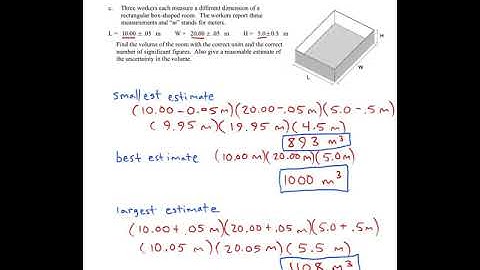 c. Three workers each measure a different dimension of a
rectangular box-shaped room. The workers report three
measurements and "m" stands for meters.
L = 10.00 ± .05 m W = 20.00 ± .05 m H = 5.0±0.5 m
Find the volume of the room with the correct units and the correct
number of significant figures. Also give a reasonable estimate of
the uncertainty in the volume.
H
W
L
smallest estimate
(10.00 - 0.05 m)(20.00 - .05 m)(5.0 - .5 m)
(9.95 m)(19.95 m)(4.5 m)
893 m³
best estimate (10.00 m)(20.00 m)(5.0 m)
1000 m³
largest estimate
(10.00 + .05 m)(20.00 + .05 m)(5.0 + .5 m)
(10.05 m)(20.05 m)(5.5 m)
1108 m³